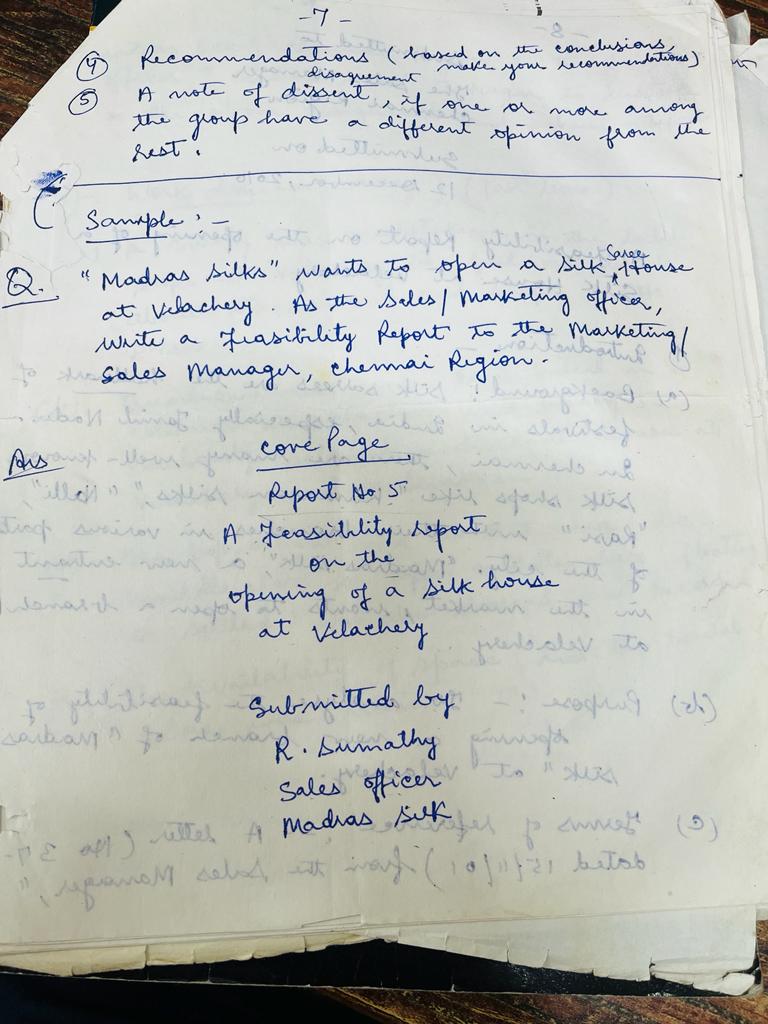 -7-
④ Recommendations (based on the conclusions,
make your recommendations)
disagreement
⑤ A note of dissent, if one or more among
the group have a different opinion from the
rest.
Sample :-
Saree
Q. "Madras Silks" wants to open a Silk ^ House
at Velachery. As the Sales/Marketing officer,
write a Feasibility Report to the Marketing/
Sales Manager, Chennai Region.
Ans cove Page
Report No. 5
A Feasibility report
on the
opening of a silk house
at Velachery
Submitted by
R. Sumathy
Sales officer
Madras Silk